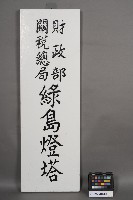 財政部
關稅總局
綠島燈塔